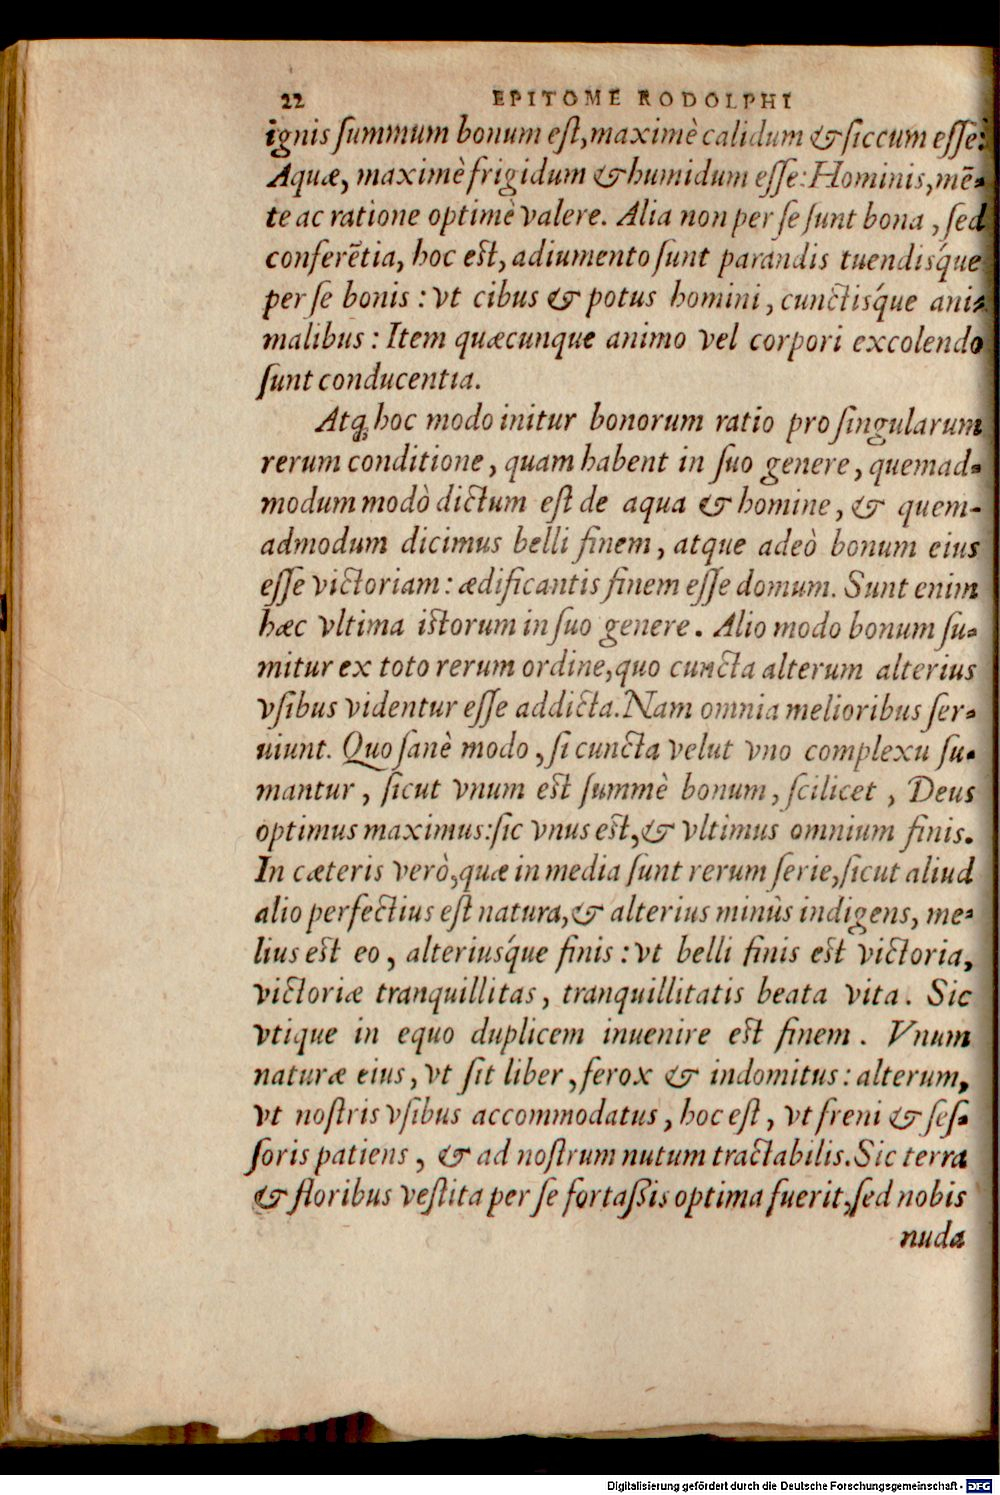 22 EPITOME RODOLPHI
ignis ſummum bonum eſt, maximè calidum & ſiccum eſſe:
Aquæ, maximè frigidum & humidum eſſe: Hominis, mē-
te ac ratione optimè valere. Alia non per ſe ſunt bona, ſed
conferētia, hoc eſt, adiumento ſunt parandis tuendisq́ue
per ſe bonis: vt cibus & potus homini, cunctisq́ue ani-
malibus: Item quæcunque animo vel corpori excolendo
ſunt conducentia.
Atqꝫ hoc modo initur bonorum ratio pro ſingularum
rerum conditione, quam habent in ſuo genere, quemad-
modum modò dictum eſt de aqua & homine, & quem-
admodum dicimus belli finem, atque adeò bonum eius
eſſe victoriam: ædificantis finem eſſe domum. Sunt enim
hæc vltima iſtorum in ſuo genere. Alio modo bonum ſu-
mitur ex toto rerum ordine, quo cuncta alterum alterius
vſibus videntur eſſe addicta. Nam omnia melioribus ſer-
uiunt. Quo ſanè modo, ſi cuncta velut vno complexu ſu-
mantur, ſicut vnum eſt ſummè bonum, ſcilicet, Deus
optimus maximus: ſic vnus eſt, & vltimus omnium finis.
In cæteris verò, quæ in media ſunt rerum ſerie, ſicut aliud
alio perfectius eſt natura, & alterius minùs indigens, me-
lius eſt eo, alteriusq́ue finis: vt belli finis eſt victoria,
victoriæ tranquillitas, tranquillitatis beata vita. Sic
vtique in equo duplicem inuenire eſt finem. Vnum
naturæ eius, vt ſit liber, ferox & indomitus: alterum,
vt noſtris vſibus accommodatus, hoc eſt, vt freni & ſeſ-
ſoris patiens, & ad noſtrum nutum tractabilis. Sic terra
& floribus veſtita per ſe fortaßis optima fuerit, ſed nobis
nuda
Digitalisierung gefördert durch die Deutsche Forschungsgemeinschaft - DFG